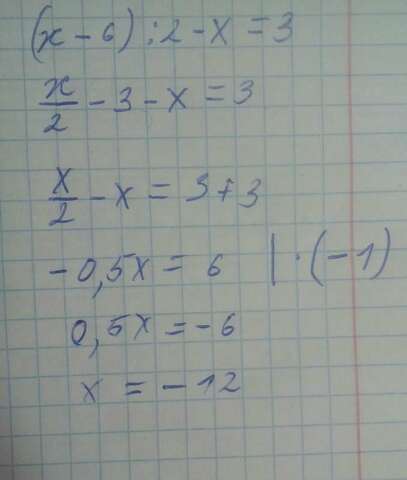 (x - 6) : 2 - x = 3
x/2 - 3 - x = 3
x/2 - x = 3 + 3
- 0,5x = 6 | · (-1)
0,5x = -6
x = -12